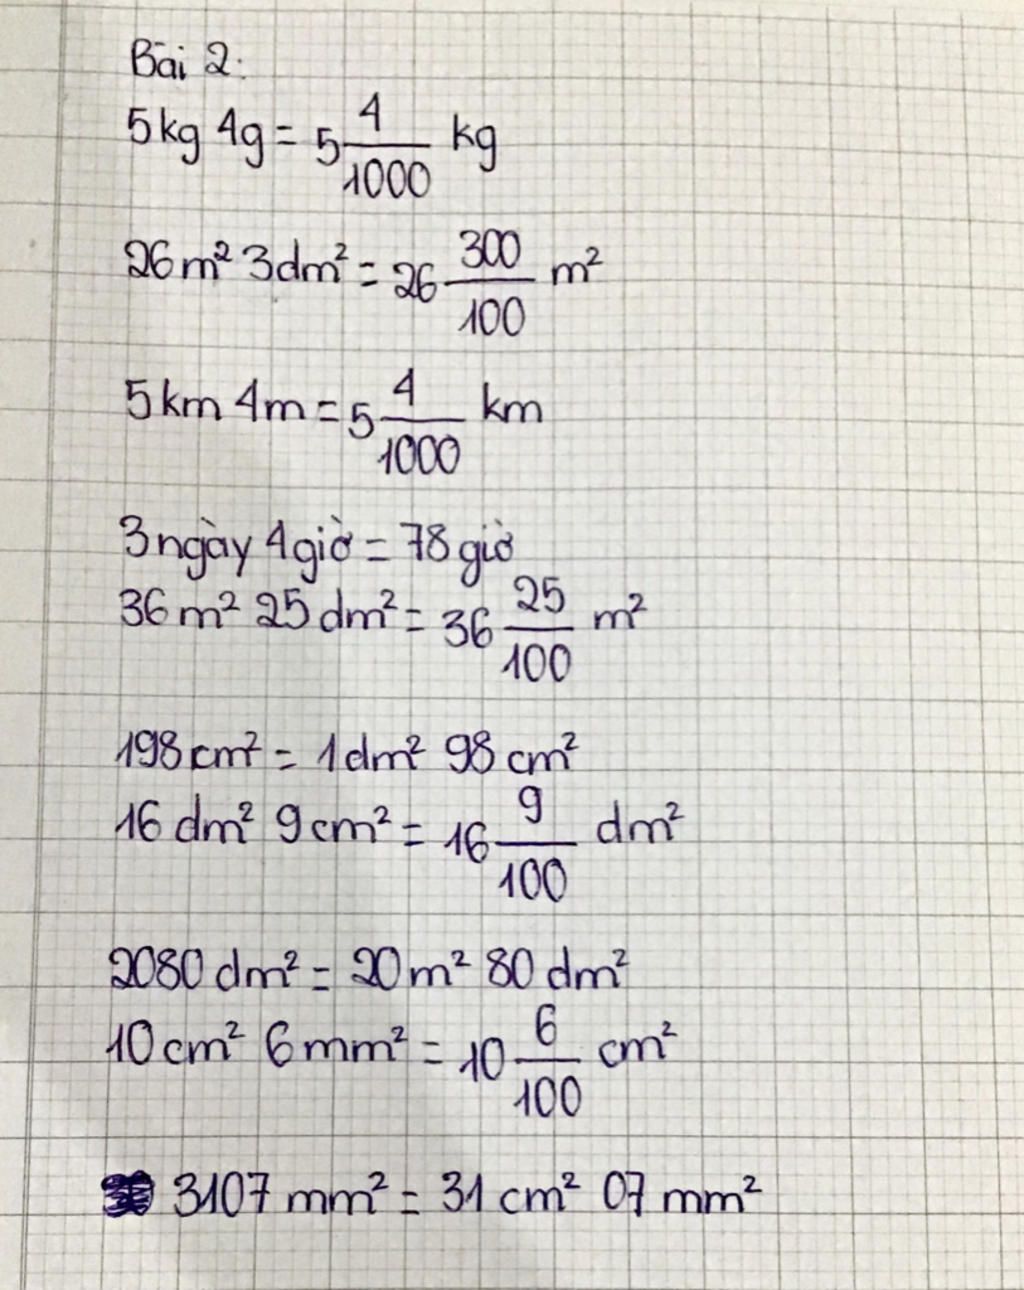 Bài 2:
5kg 4g = 5 4/1000 kg
26m² 3dm² = 26 300/100 m²
5km 4m = 5 4/1000 km
3 ngày 4 giờ = 78 giờ
36 m² 25 dm² = 36 25/100 m²
198 cm² = 1 dm² 98 cm²
16 dm² 9 cm² = 16 9/100 dm²
2080 dm² = 20 m² 80 dm²
10 cm² 6 mm² = 10 6/100 cm²
3107 mm² = 31 cm² 07 mm²